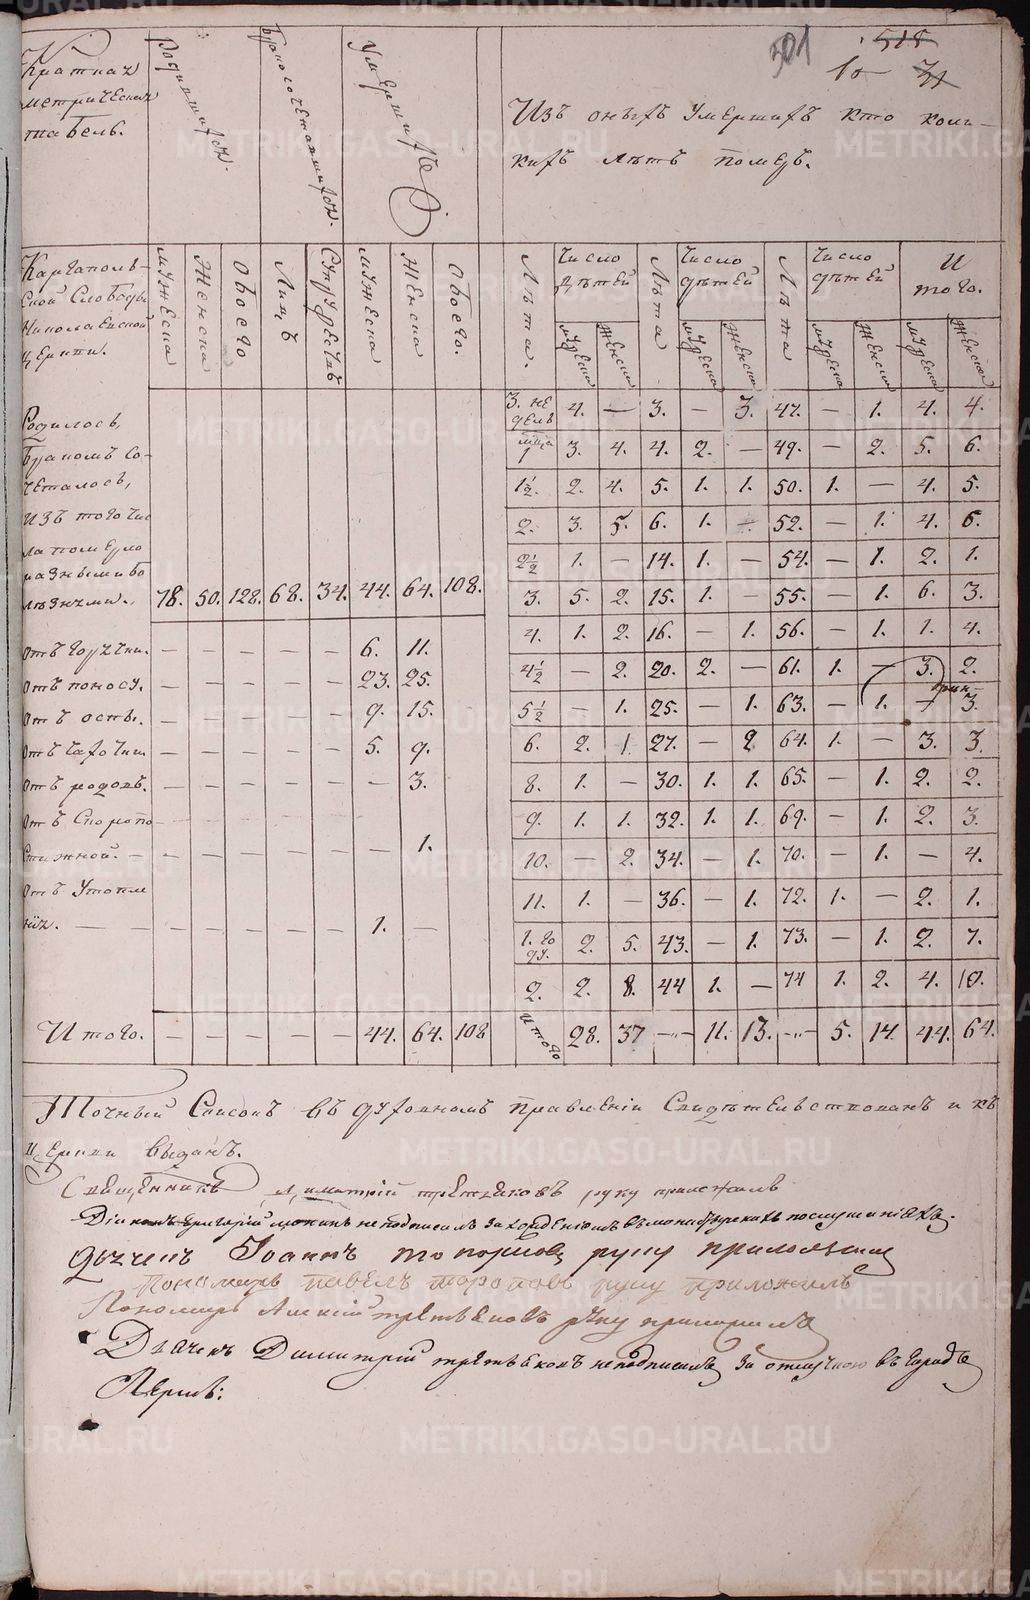 301
518
10 31
Краткая
метрическая
табель.
Родившихся.
Бракосочетавшихся.
Умершихъ
Изъ оныхъ умершихъ кто коли-
кихъ лѣтъ померъ.
Каргаполь-
ской Слободы
Николаевской
церкви.
мужеска
Женска
Обоего
Лицъ
Супружествъ
мужеска
Женска
Обоего.
Лѣта.
Число дѣтей
мужеска
Женска
Лѣта
Число дѣтей
мужеска
Женска
Лѣта
Число дѣтей
мужеска
Женска
И того.
мужеска
Женска
Родилось,
Бракомъ со-
четалось,
изъ того чис
ла померло
разными бо
лѣзньми. 78. 50. 128. 68. 34. 44. 64. 108.
отъ горячки. — — — — — 6. 11.
отъ поносу. — — — — — 23. 25.
отъ оспы. — — — — — 9. 15.
отъ чахотки — — — — — 5. 9.
отъ родовъ. — — — — — — 3.
отъ Скоропо
стижной. — — — — — — — 1.
отъ Утопле
нія. — — — — — — 1. —
Итого. — — — — — 44. 64. 108
3. не дель 4. — 3. — 3. 47. — 1. 4. 4.
мца 1 3. 4. 4. 2. — 49. — 2. 5. 6.
1½. 2. 4. 5. 1. 1. 50. 1. — 4. 5.
2. 3. 5. 6. 1. — 52. — 1. 4. 6.
2½ 1. — 14. 1. — 54. — 1. 2. 1.
3. 5. 2. 15. 1. — 55. — 1. 6. 3.
4. 1. 2. 16. — 1. 56. — 1. 1. 4.
4½ — 2. 20. 2. — 61. 1. — 3. 2.
5½ — 1. 25. — 1. 63. — 1. — 3.
6. 2. 1 27. — 2 64. 1. — 3. 3.
8. 1. — 30. 1. 1. 65. — 1. 2. 2.
9. 1. 1. 32. 1. 1. 69. — 1. 2. 3.
10. — 2. 34. — 1. 70. — 1. — 4.
11. 1. — 36. — 1. 72. 1. — 2. 1.
1. го ду. 2. 5. 43. — 1. 73. — 1. 2. 7.
2. 2. 8. 44 1. — 74 1. 2. 4. 10.
Итого 28. 37 — 11. 13. — 5. 14. 44. 64.
Точный Списокъ въ духовномъ правленіи Свидѣтельствованъ и къ
церкви выданъ.
Священникъ Димитрій третьяковъ руку приложилъ
Діаконъ григорій не подписалъ за хожденіемъ въ послушаніяхъ.
дьячекъ Іоаннъ топорковъ руку приложилъ
Пономарь павелъ топорковъ руку приложилъ
Пономарь Алексій третьяковъ руку приложилъ
Дьячекъ Димитрій третьяковъ не подписалъ за отлучкою въ городъ
Пермь:
METRIKI.GASO-URAL.RU